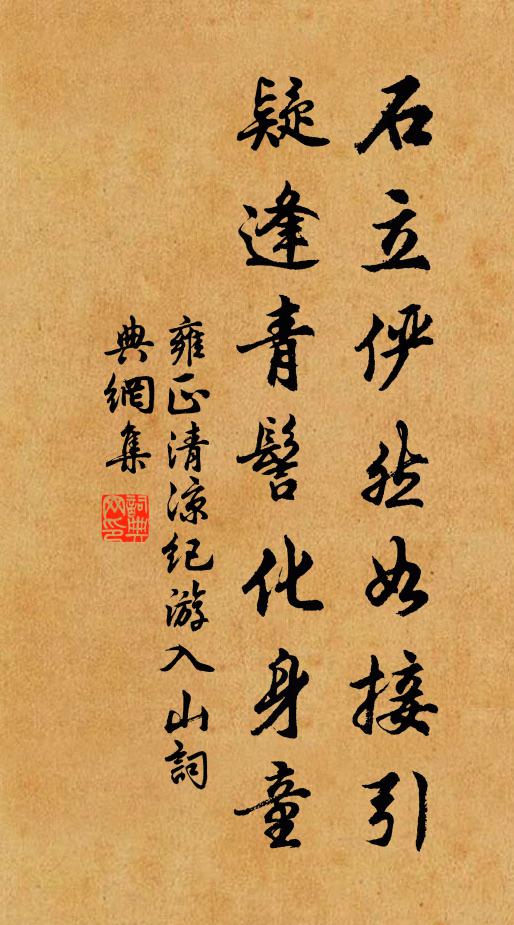 石立俨然如接引
疑逢青髻化身童
雍正清凉纪游入山詞
典網集
詞典網印